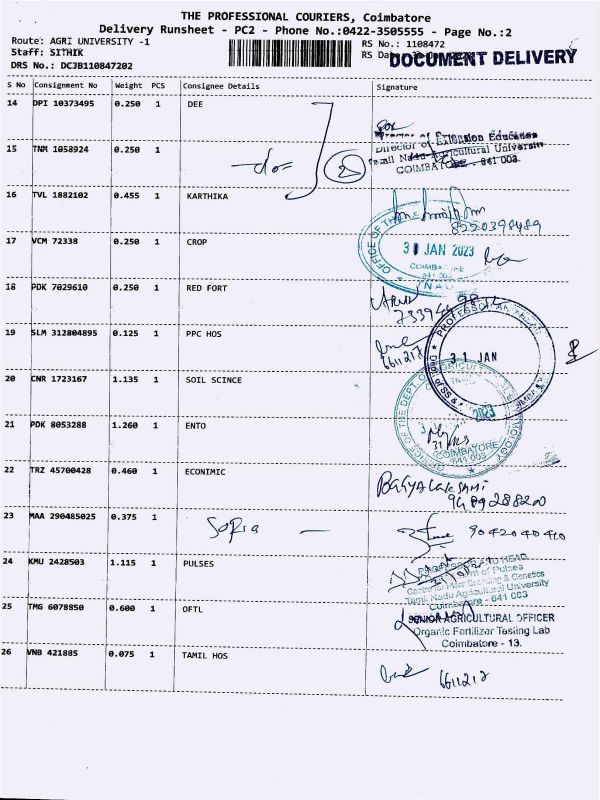 THE PROFESSIONAL COURIERS, Coimbatore
Delivery Runsheet - PC2 - Phone No.:0422-3505555 - Page No.:2
Route: AGRI UNIVERSITY -1
RS No.: 1108472
Staff: SITHIK
RS Da
DOCUMENT DELIVERY
DRS No.: DCJB110847202
S No Consignment No Weight PCS Consignee Details Signature
14 DPI 10373495 0.250 1 DEE
Director of Extension Education
15 TNM 1058924 0.250 1 -do- 2
Director of Extension Education
Tamil Nadu Agricultural University
COIMBATORE - 641 003
16 TVL 1882102 0.455 1 KARTHIKA
8220398489
17 VCM 72338 0.250 1 CROP
OFFICE OF TH
31 JAN 2023
COIMBATORE
641 003
TNAU
18 PDK 7029610 0.250 1 RED FORT
19 SLM 312804895 0.125 1 PPC HOS
6611217
PROFESSOR AND HEAD
31 JAN
20 CNR 1723167 1.135 1 SOIL SCINCE
21 PDK 8053288 1.260 1 ENTO
OFFICE OF THE DEPT. OF AGRICULTURAL
COIMBATORE
641 003
22 TRZ 45700428 0.460 1 ECONIMIC
BAGYALAKSHMI
9489288200
23 MAA 290485025 0.375 1 Sofia -
9042040410
24 KMU 2428503 1.115 1 PULSES
PROFESSOR AND HEAD
Department of Pulses
Centre for Plant Breeding & Genetics
Tamil Nadu Agricultural University
Coimbatore - 641 003
25 TMG 6078850 0.600 1 OFTL
SENIOR AGRICULTURAL OFFICER
Organic Fertilizer Testing Lab
Coimbatore - 13.
26 VNB 421885 0.075 1 TAMIL HOS
6611217